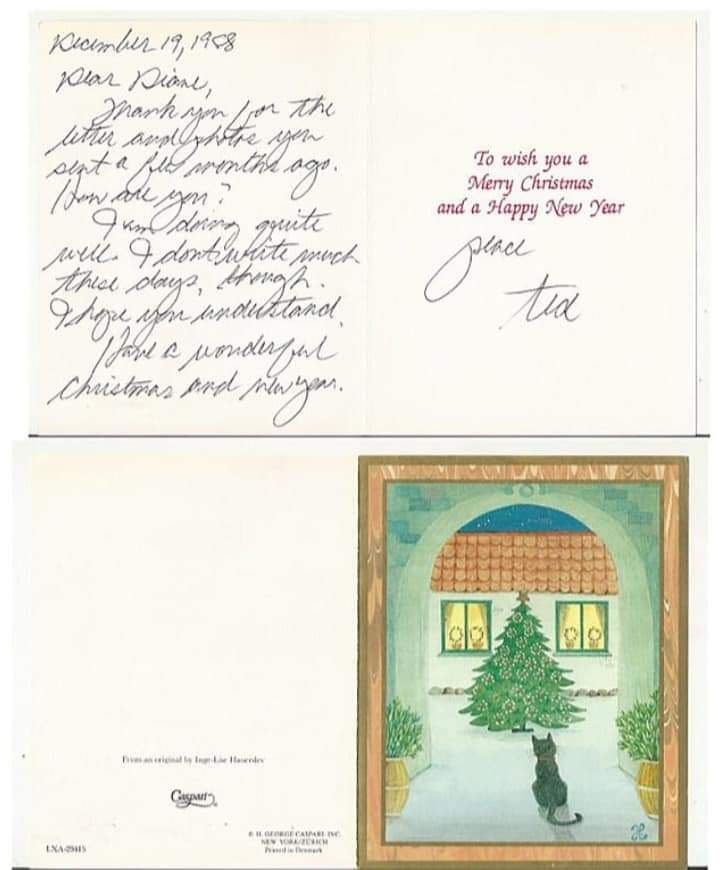 December 19, 1988
Dear Diane,
Thank you for the
letter and photos you
sent a few months ago.
How are you?
I am doing quite
well. I don't write much
these days, though.
I hope you understand.
Have a wonderful
Christmas and new year.
To wish you a
Merry Christmas
and a Happy New Year
peace
Ted
From an original by Inge-Lise
Caspari
© H. GEORGE CASPARI, INC.
NEW YORK/ZÜRICH
Printed in Denmark